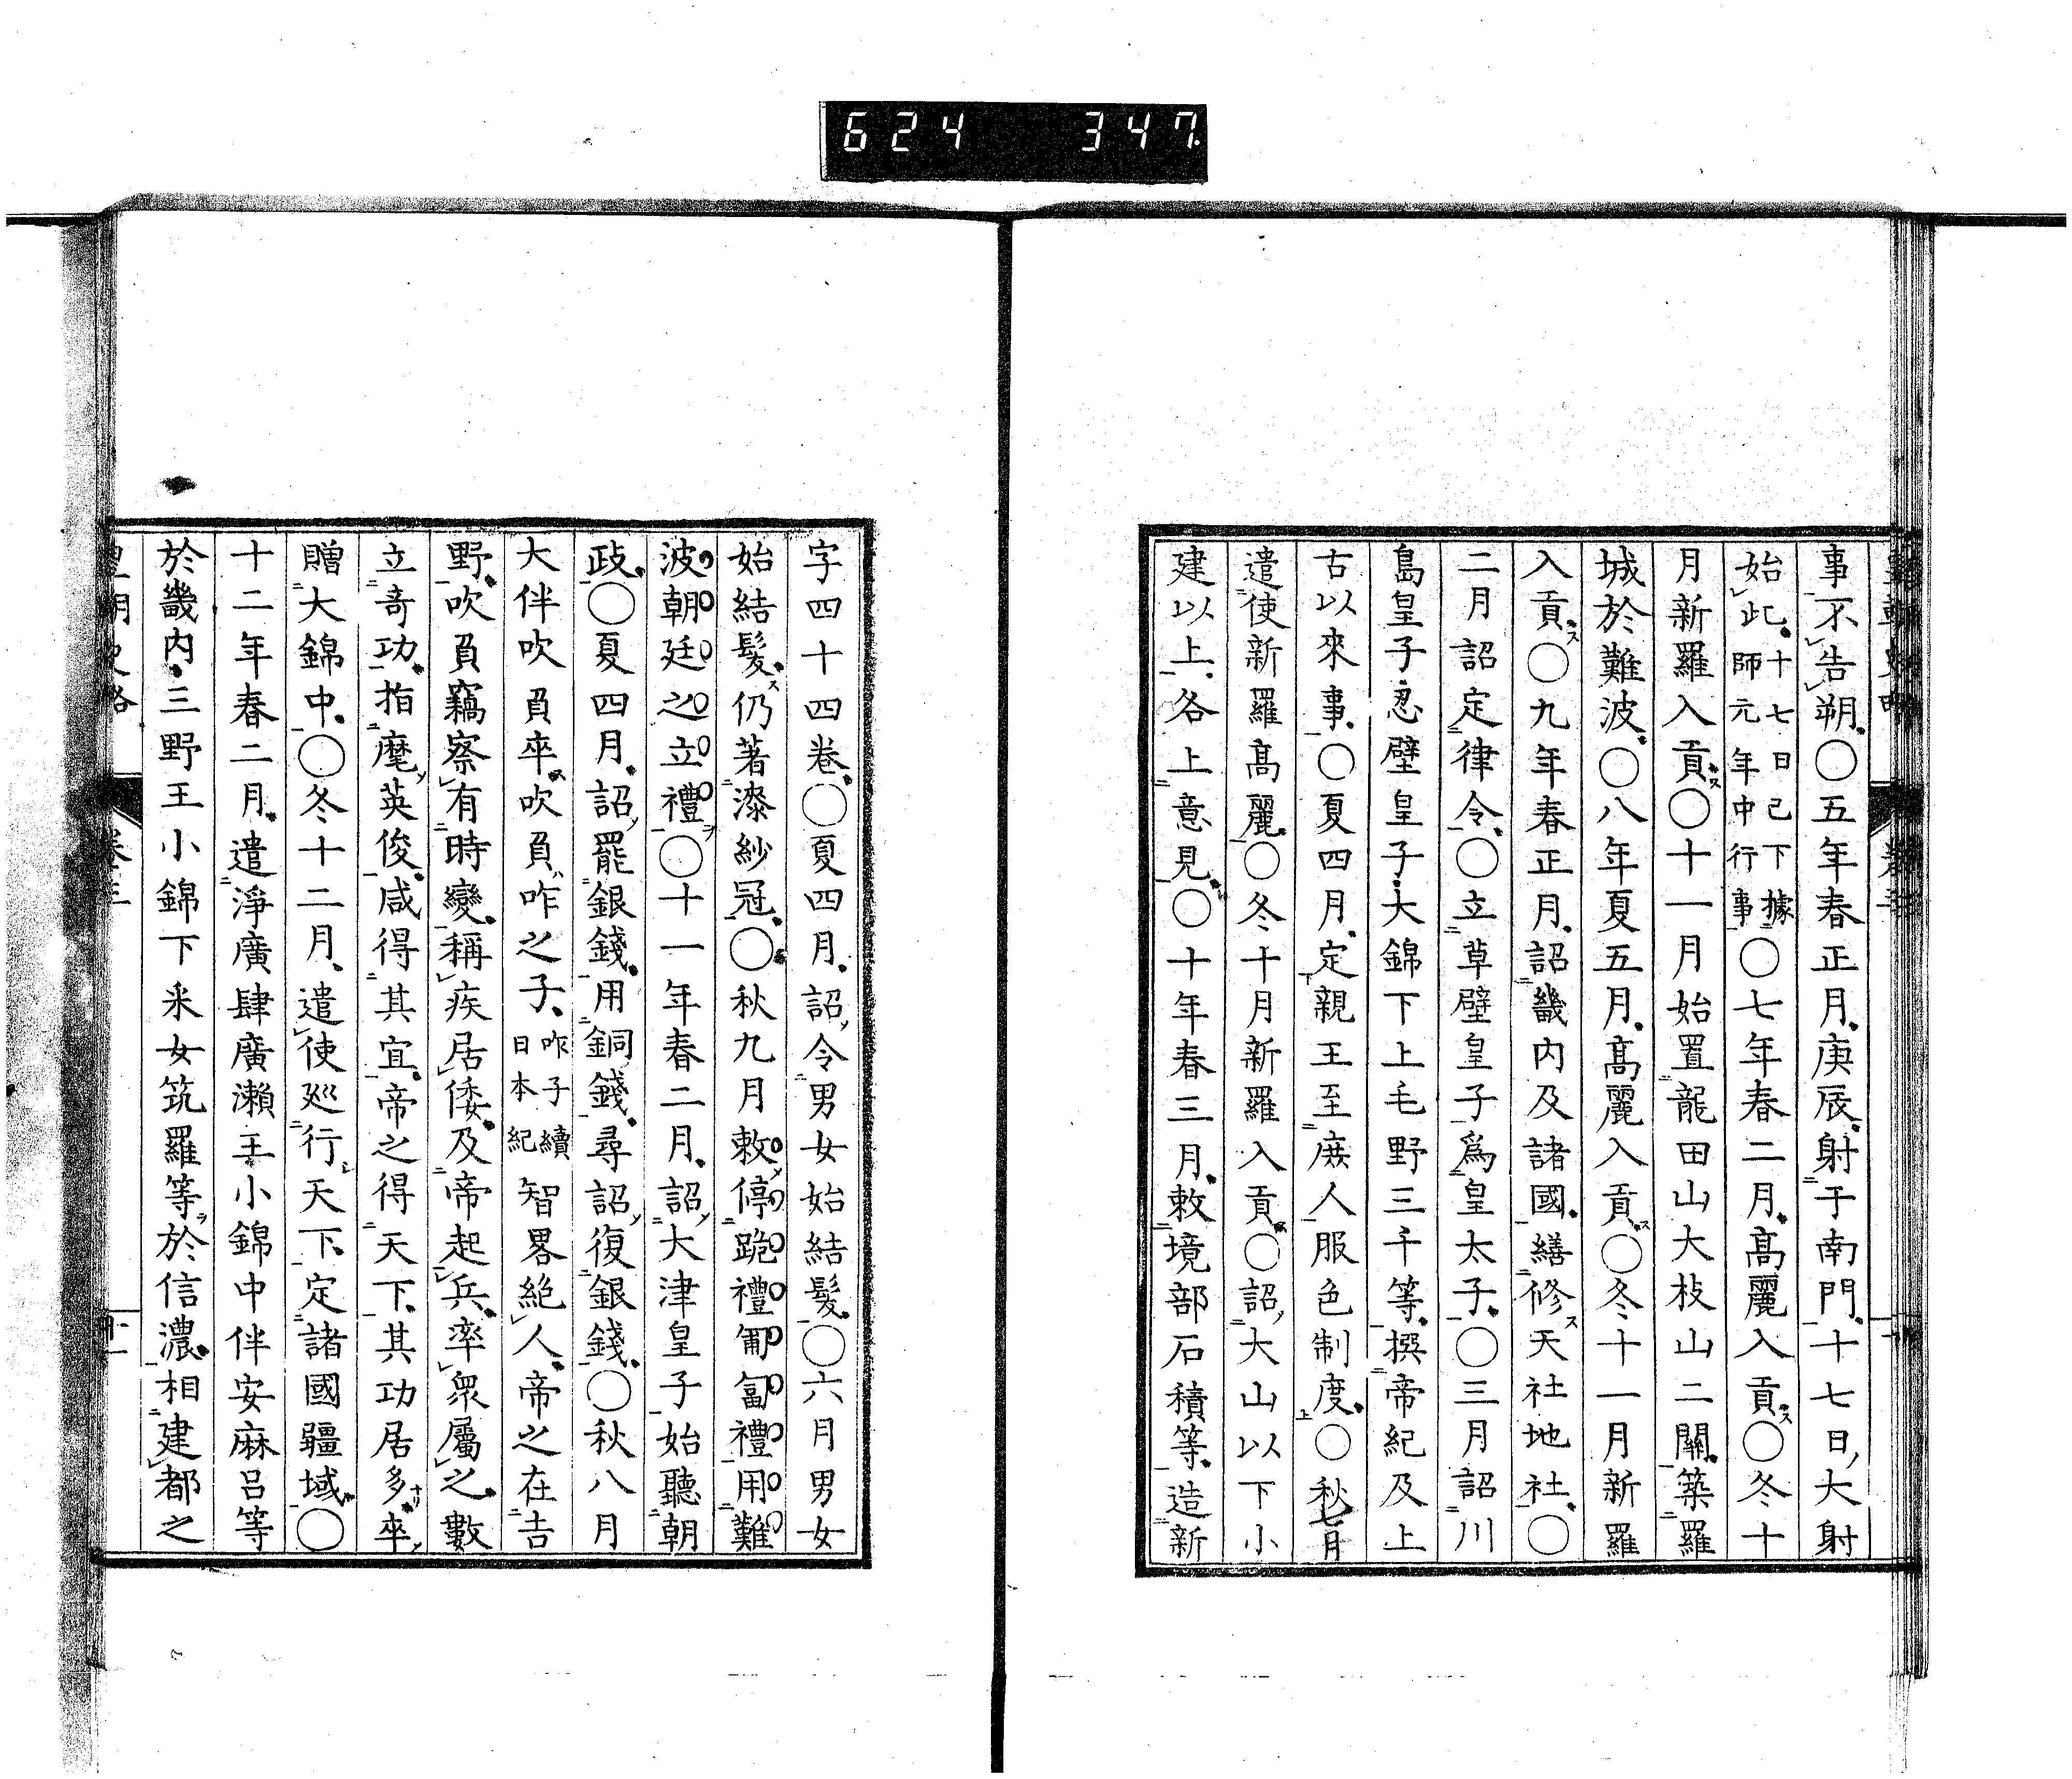 624 347
事不告朔。○五年春正月、庚辰、射于南門。十七日、大射
始此。十七日已下據師元年中行事○七年春二月、高麗入貢。○冬十
月新羅入貢。○十一月始置龍田山大枝山二關。築羅
城於難波。○八年夏五月、高麗入貢。○冬十一月新羅
入貢。○九年春正月、詔畿内及諸國、繕修天社地社。○
二月詔定律令。○立草壁皇子爲皇太子。○三月詔川
島皇子忍壁皇子大錦下上毛野三千等、撰帝紀及上
古以來事。○夏四月、定親王至庶人服色制度。○秋七月
遣使新羅高麗。○冬十月新羅入貢。○詔大山以下小
建以上、各上意見。○十年春三月、敕境部石積等、造新
字四十四卷。○夏四月、詔令男女始結髮。○六月男女
始結髮、仍著漆紗冠。○秋九月敕停跪禮匍匐禮用難
波朝廷之立禮。○十一年春二月、詔大津皇子始聽朝
政。○夏四月、詔罷銀錢、用銅錢。尋詔復銀錢。○秋八月
大伴吹負卒。吹負咋之子、咋子續日本紀智畧絶人、帝之在吉
野、吹負竊察有時變、稱疾居倭、及帝起兵、率衆屬之、數
立奇功。指麾英俊、咸得其宜、帝之得天下、其功居多、卒
贈大錦中。○冬十二月、遣使巡行天下、定諸國疆域。○
十二年春二月、遣淨廣肆廣瀬王小錦中伴安麻呂等
於畿内、三野王小錦下釆女筑羅等於信濃、相建都之
卷三